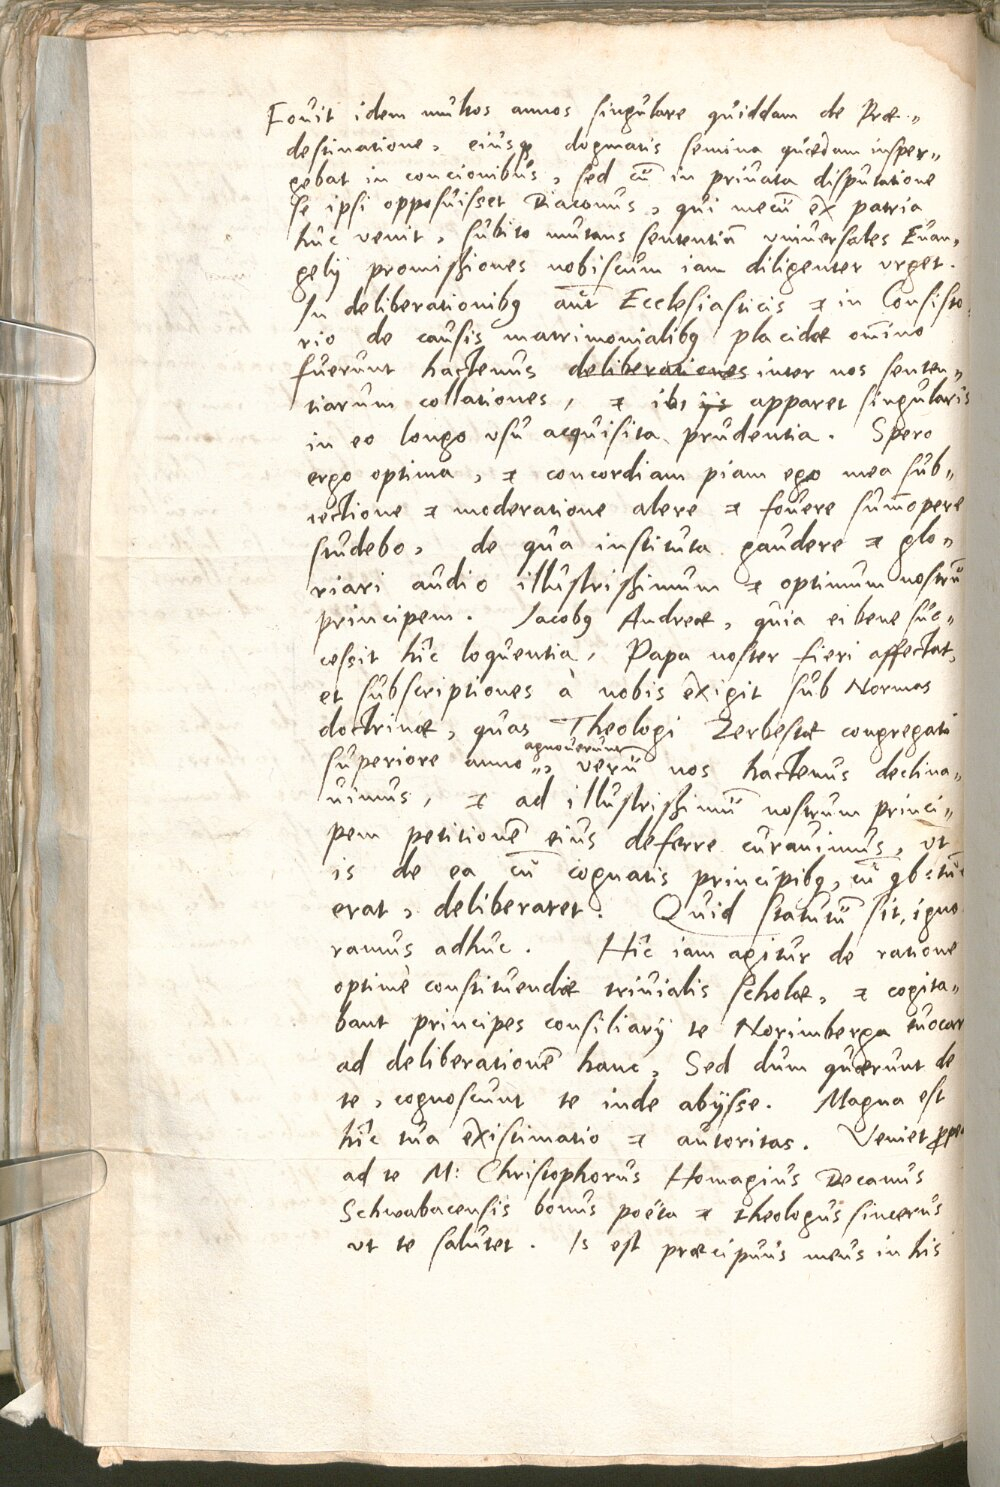 Fovit idem multos annos singulare quiddam de Præ„
destinatione, eiusq₃ dogmatis semina quædam insper„
gebat in concionibus, sed cũ in privata disputatione
se ipsi opposuisset Diaconus, qui mecũ ex patria
huc venit, subito mutans sententiã vniversales Evan„
gelij promissiones nobiscum iam diligenter vrget.
In deliberationibꝰ aũt Ecclesiasticis & in Consisto
rio de causis matrimonialibꝰ placidæ om̃ino
fuerunt hactenus deliberationes inter nos senten„
tiarum collationes, & ibi ijs apparet singularis
in eo longo vsu acquisita prudentia. Spero
ergo optima, & concordiam piam ego mea sub„
iectione & moderatione alere & fovere sum̃opere
studebo, de qua instituta gaudere & glo„
riari audio illustrissimum & optimum nostrũ
principem. Jacobꝰ Andreæ, quia ei bene suc„
cessit hîc loquentia, Papa noster fieri affectat,
et subscriptiones à nobis exigit sub Normas
doctrinæ, quas Theologi Zerbestæ congregati
agnoverunt
superiore anno„, verũ nos hactenus declina„
uimus, & ad illustrissimũ nostrum princi„
pem petitionẽ eius deferre curavimus, vt
is de ea cũ cognatis principibꝰ, cũ qbꝰ tũc
erat, deliberaret. Quid statutũ sit, igno
ramus adhuc. Hîc iam agitur de ratione
optimè constituendæ trivialis scholæ, & cogita„
bant principes consiliarij te Norimberga evocare
ad deliberationẽ hanc, Sed dum quærunt de
te, cognoscunt te inde abijsse. Magna est
hîc tua existimatio & autoritas. Veniet
ad te M: Christophorus Homagius Decanus
Schwabacensis bonus poëta & theologus sincerus
vt te salutet. Is est præcipuus meus in his